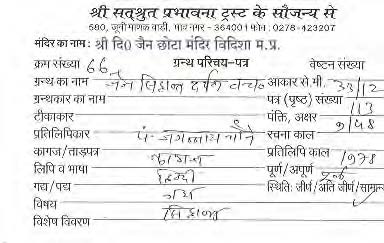 श्री सत्श्रुत प्रभावना ट्रस्ट के सौजन्य से
580, जूनी माणक वाडी, भावनगर - 364001 फोन : 0278-423207
मंदिर का नाम : श्री दि0 जैन छोटा मंदिर विदिशा म.प्र.
क्रम संख्या 66 ग्रन्थ परिचय-पत्र वेष्टन संख्या
ग्रन्थ का नाम जैन सिद्धान्त दर्पण आकार से.मी. 33/12
ग्रन्थकार का नाम पत्र (पृष्ठ) संख्या 113
टीकाकार पंक्ति, अक्षर 9/48
प्रतिलिपिकार पं. जगन्नाथ चौबे रचना काल
कागज/ताड़पत्र कागज प्रतिलिपि काल 1978
लिपि व भाषा हिन्दी पूर्ण/अपूर्ण पूर्ण
गद्य/पद्य गद्य स्थिति: जीर्ण/अति जीर्ण/सामान्य
विषय सिद्धान्त
विशेष विवरण